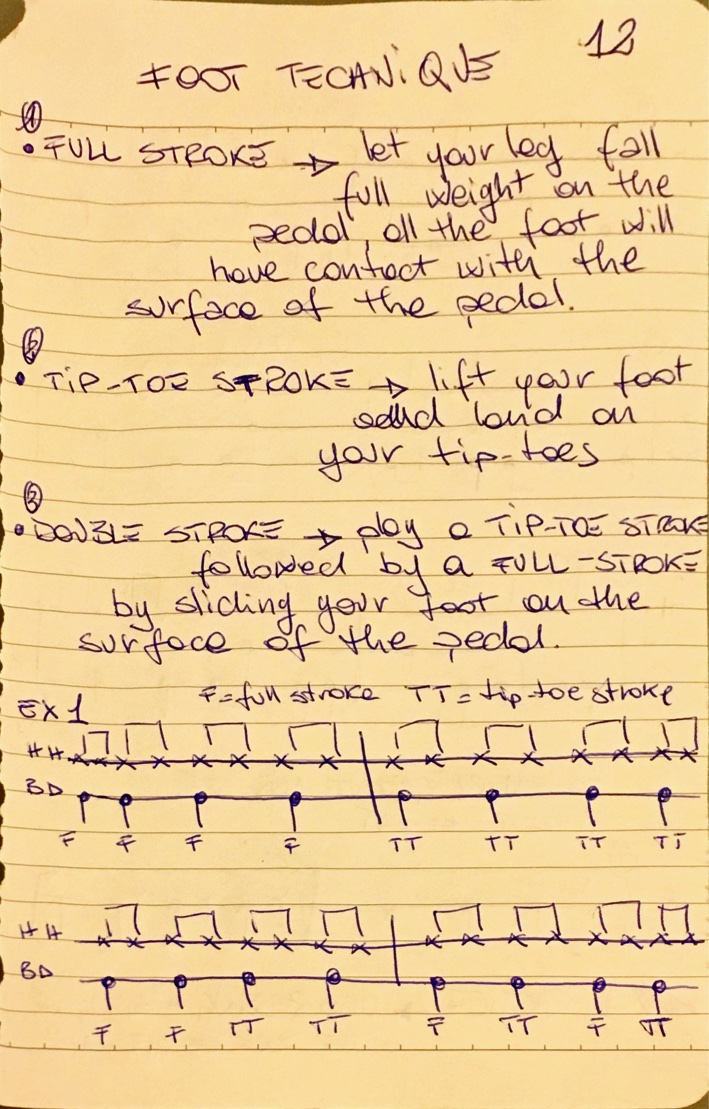 12
FOOT TECHNIQUE
①
• FULL STROKE → let your leg fall
full weight on the
pedal, all the foot will
have contact with the
surface of the pedal.
• TIP-TOE STROKE → lift your foot
and land on
your tip-toes
②
• DOUBLE STROKE → play a TIP-TOE STROKE
followed by a FULL-STROKE
by sliding your foot on the
surface of the pedal.
EX 1 F=full stroke TT=tip-toe stroke
HH
BD
F F F F TT TT TT TT
HH
BD
F F TT TT F TT F TT